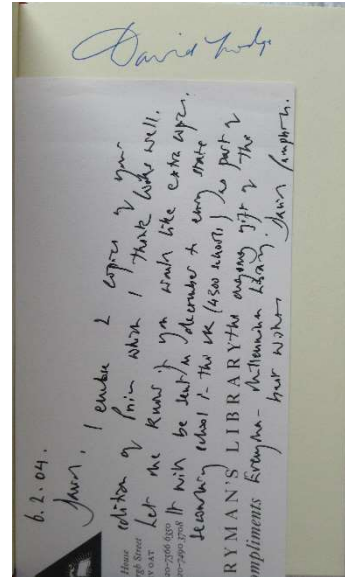 David Lodge
6.2.04.
David, I enclose 2 copies of your
edition of Pnin which I think looks well.
Let me know if you would like extra copies.
It will be sent in December to every state
secondary school in the UK (4500 schools) as part of
the ongoing gift of the
Everyman - Millennium Library.
best wishes David Campbell.
House
gh Street
V 0AT
20-7566 6350
20-7490 3708
RYMAN'S LIBRARY
mpliments